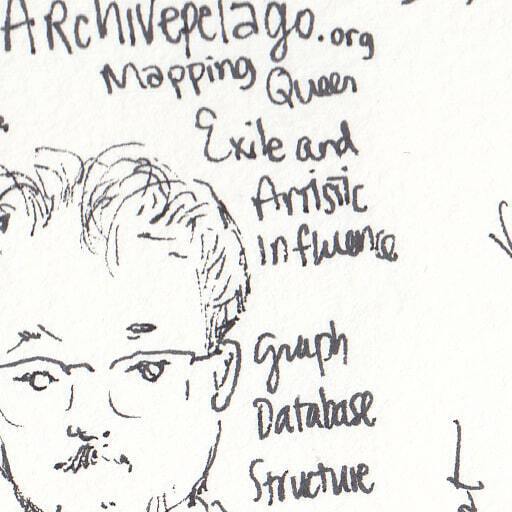 Archivepelago.org
Mapping Queer
Exile and
Artistic
Influence
Graph
Database
Structure